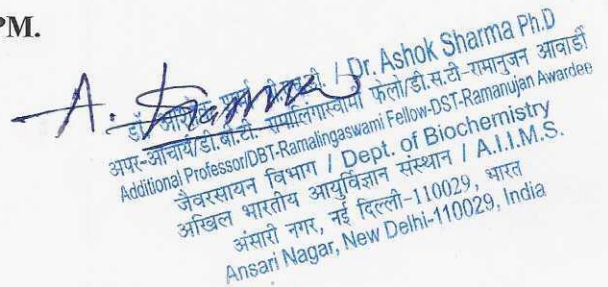 PM.
A. Sharma
डॉ. अशोक शर्मा पी.एच.डी. / Dr. Ashok Sharma Ph.D
अपर-आचार्य/डी.बी.टी. रामालिंगास्वामी फेलो/डी.स.टी-रामानुजन आवार्डी
Additional Professor/DBT-Ramalingaswami Fellow-DST-Ramanujan Awardee
जैवरसायन विभाग / Dept. of Biochemistry
अखिल भारतीय आयुर्विज्ञान संस्थान / A.I.I.M.S.
अंसारी नगर, नई दिल्ली-110029, भारत
Ansari Nagar, New Delhi-110029, India